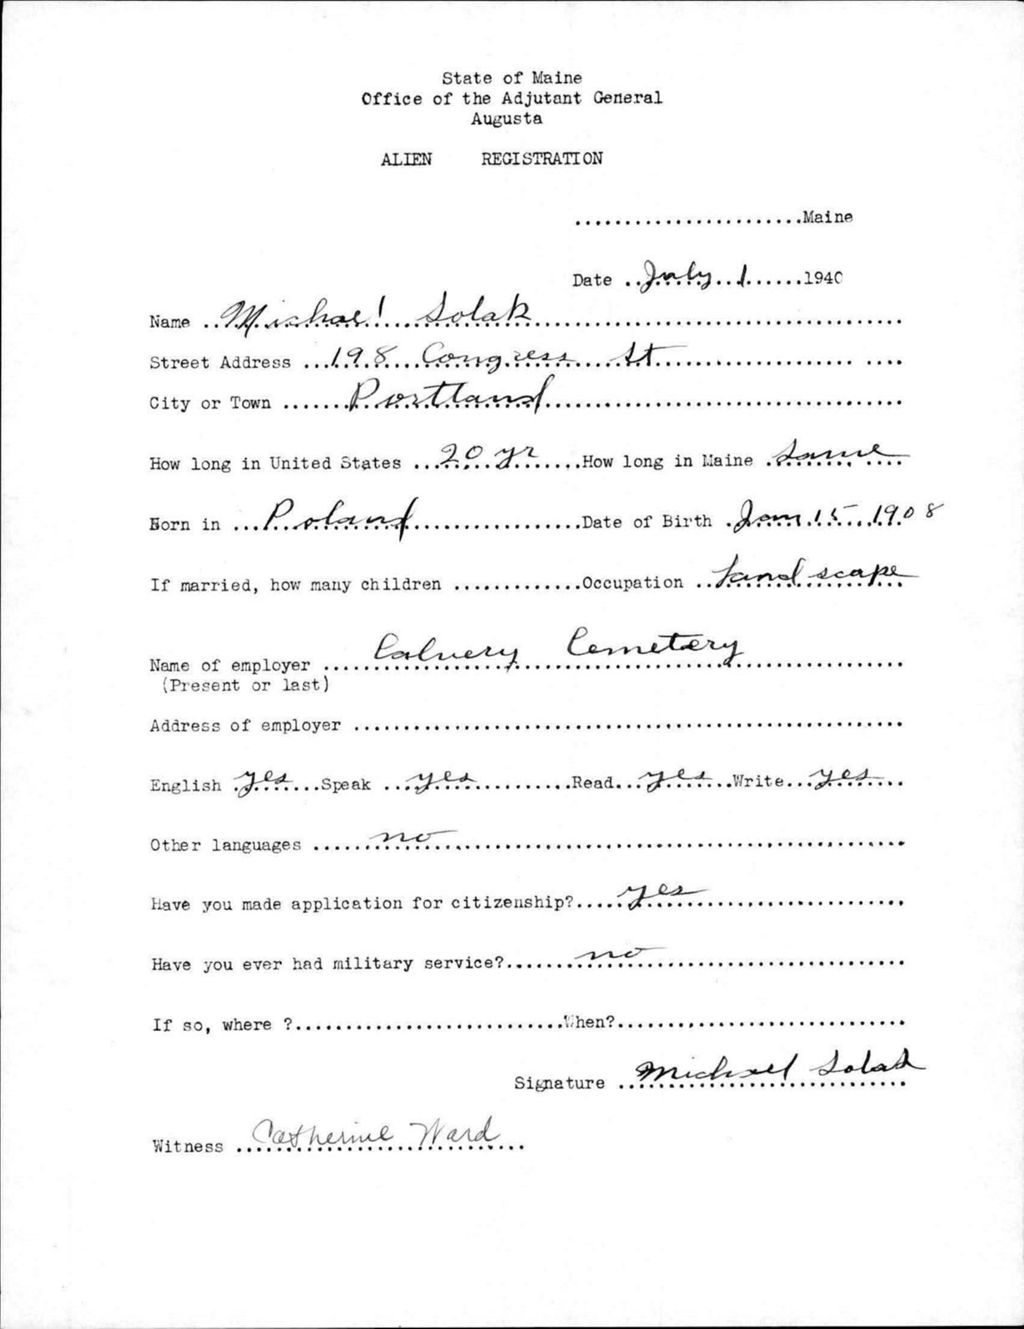 State of Maine
Office of the Adjutant General
Augusta
ALIEN REGISTRATION
.......................Maine
Date ..July 1......1940
Name ..Michael Solak......................................
Street Address ...198 Congress St.........................
City or Town .......Portland....................................
How long in United States ...20 yr.....How long in Maine .Same....
Born in ...Poland.................Date of Birth .Jan 15 1908
If married, how many children .............Occupation ..Landscape
Name of employer .....Calvery Cemetery................
(Present or last)
Address of employer .......................................................
English .yes...Speak ...yes..........Read...yes..Write...yes...
Other languages ......no.............................................
Have you made application for citizenship?.....yes....................
Have you ever had military service?.......no.........................
If so, where ?...........................When?.............................
Signature ..Michael Solak
Witness ...Catherine Ward...